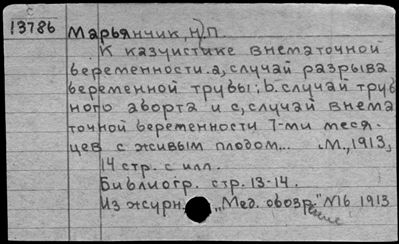 с
13786 Марьянчик, Н.П.
К казуистике внематочной
беременности. а, случай разрыва
беременной трубы; b. случай труб
ного аборта и с, случай внема
точной беременности 7-ми меся-
цев с живым плодом... М., 1913,
14 стр. с илл.
Библиогр. стр. 13-14.
Из журн. „Мед. обозрение" №6 1913